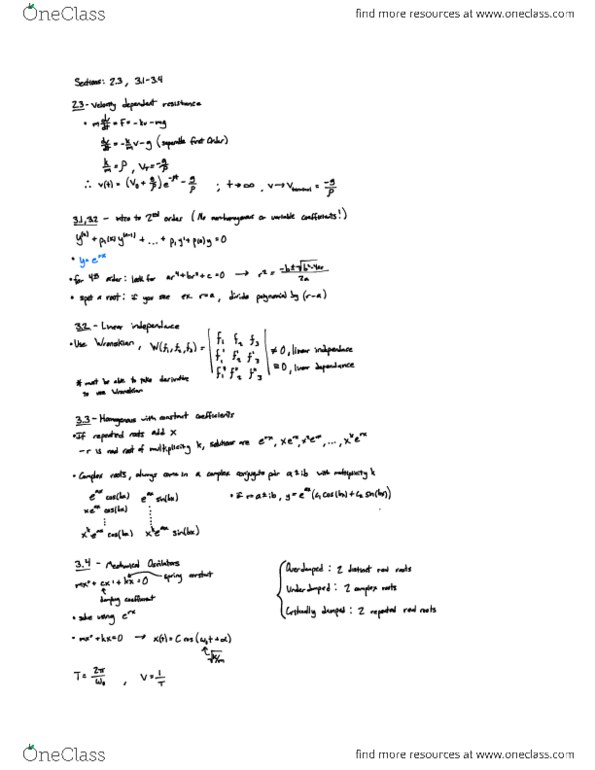 OneClass
find more resources at www.oneclass.com
Sections: 2.3, 3.1-3.4
2.3 - Velocity dependent resistance
• m dv/dt = F = -kv - mg
dv/dt = -k/m v - g (separable first order)
k/m = ρ, Vτ = -g/ρ
∴ v(t) = (V₀ + g/ρ) e^-ρt - g/ρ ; t → ∞, v → Vterminal = -g/ρ
3.1, 3.2 - Intro to 2nd order (No nonhomogenous or variable coefficients!)
y^(n) + p₁(x) y^(n-1) + ... + p₁ y' + p(x) y = 0
• y = e^rx
• for 4th order: look for ar⁴ + br² + c = 0 → r² = -b ± √b² - 4ac / 2a
• spot a root: if you see ex. r = a, divide polynomial by (r - a)
3.2 - Linear independence
• Use Wronskian, W(f₁, f₂, f₃) = | f₁ f₂ f₃ |
| f'₁ f'₂ f'₃ | ≠ 0, linear independence
| f"₁ f"₂ f"₃ | = 0, linear dependence
* must be able to take derivative
to use Wronskian
3.3 - Homogenous with constant coefficients
• If repeated roots add x
- r is real root of multiplicity k, solutions are e^rx, xe^rx, x²e^rx, ..., x^k e^rx
• Complex roots, always come in a complex conjugate pair a ± ib with multiplicity k
e^ax cos(bx) e^ax sin(bx) • if r = a ± ib, y = e^ax (c₁ cos(bx) + c₂ sin(bx))
xe^ax cos(bx)
x^k e^ax cos(bx) x^k e^ax sin(bx)
3.4 - Mechanical Oscillators
mx" + cx' + kx = 0 spring constant
damping coefficient
• solve using e^rx
• mx" + kx = 0 → x(t) = C cos(ω₀t + α)
√k/m
T = 2π/ω₀ , V = 1/T
Overdamped: 2 distinct real roots
Underdamped: 2 complex roots
Critically damped: 2 repeated real roots
OneClass
find more resources at www.oneclass.com